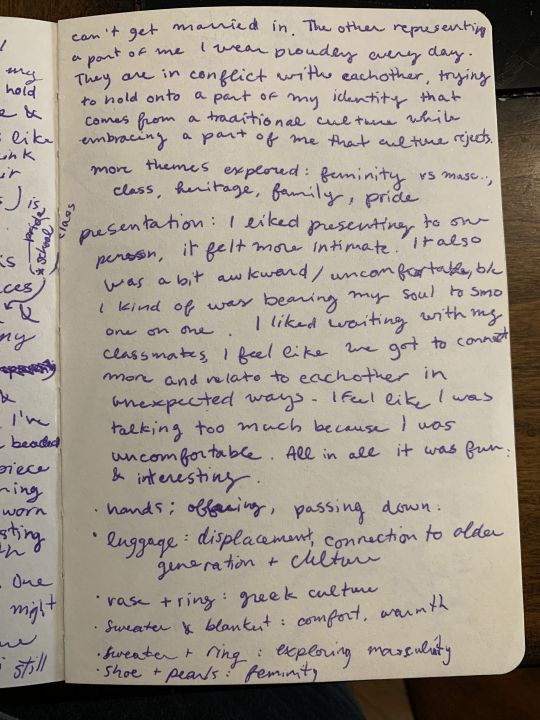 my
hold
e &
s like
ink
ir
s) is
pride
* school
class
is
ces)
&
my
&
I've
beaded
piece
ning
worn
sting
th
. One
might
me
i still
can't get married in. The other representing
a part of me I wear proudly every day.
They are in conflict withe eachother, trying
to hold onto a part of my identity that
comes from a traditional culture while
embracing a part of me that culture rejects.
more themes explored: feminity vs masc.,
class, heritage, family, pride
presentation: I liked presenting to one
person, it felt more intimate. It also
was a bit awkward/uncomfortable, b/c
I kind of was bearing my soul to smo
one on one. I liked waiting with my
classmates, I feel like we got to connect
more and relate to eachother in
unexpected ways. I feel like I was
talking too much because I was
uncomfortable. All in all it was fun
& interesting.
· hands: offering, passing down.
· luggage: displacement, connection to older
generation + culture
· vase + ring: greek culture
· sweater & blanket: comfort, warmth
· sweater + ring: exploring masculinity
· shoe + pearls: feminity